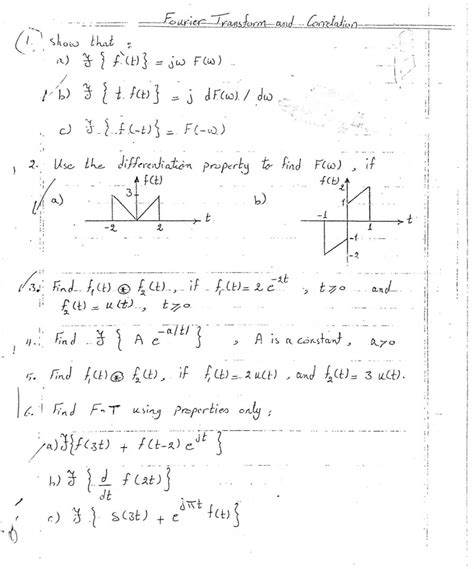 Fourier Transform and Correlation
1. show that :
a) ℱ { f`(t) } = jω F(ω)
b) ℱ { t f(t) } = j dF(ω) / dω
c) ℱ { f(-t) } = F(-ω)
2. Use the differentiation property to find F(ω), if
a) f(t) 3 -2 2 t
b) f(t) 2 1 -1 1 t -1 -2
3. Find f₁(t) ⊛ f₂(t), if f₁(t) = 2 e^-2t , t ≥ 0 and
f₂(t) = u(t), t ≥ 0
4. Find ℱ { A e^-a|t| } , A is a constant, a>0
5. Find f₁(t) ⊛ f₂(t), if f₁(t) = 2 u(t), and f₂(t) = 3 u(t).
6. Find F-T using properties only;
a) ℱ{f(3t) + f(t-2) e^jt }
b) ℱ { d/dt f(2t) }
c) ℱ { S(3t) + e^jπt f(t) }